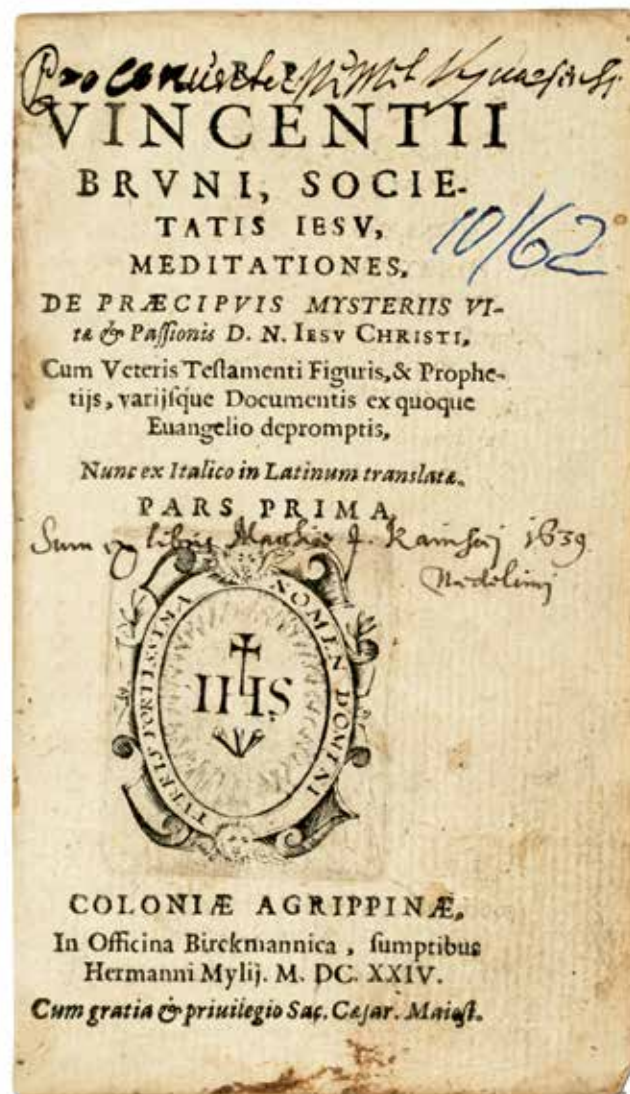 Pro conu
R. P.
VINCENTII
BRVNI, SOCIE-
TATIS IESV,
10/62
MEDITATIONES,
DE PRÆCIPVIS MYSTERIIS VI-
tæ & Paſſionis D. N. IESV CHRISTI,
Cum Veteris Teſtamenti Figuris, & Prophe-
tijs, varijſque Documentis ex quoque
Euangelio depromptis,
Nunc ex Italico in Latinum translatæ.
PARS PRIMA,
Sum ex libris 1639
TVRRIS FORTISSIMA NOMEN DOMINI
IHS
COLONIÆ AGRIPPINÆ,
In Officina Birckmannica, ſumptibus
Hermanni Mylij. M. DC. XXIV.
Cum gratia & priuilegio Sac. Cæſar. Maieſt.